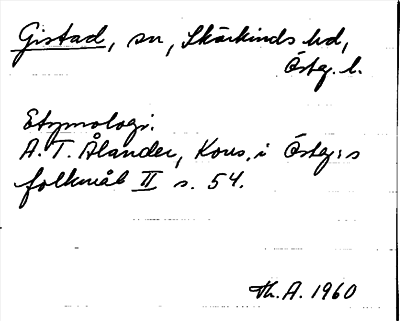 Gistad, sn, Skärkinds hd,
Östg. l.
Etymologi.
A. T. Ålander, Kons. i Östg:s
folkmål II s. 54.
Th. A. 1960